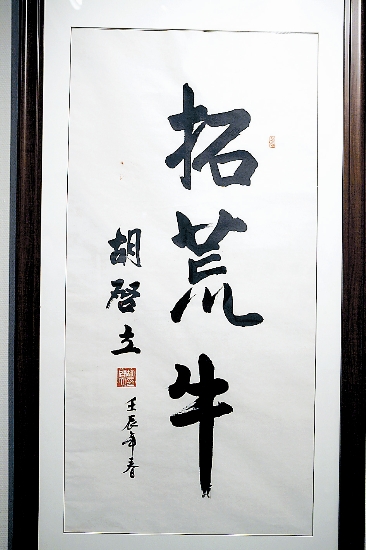 拓荒牛
胡启立
壬辰年春